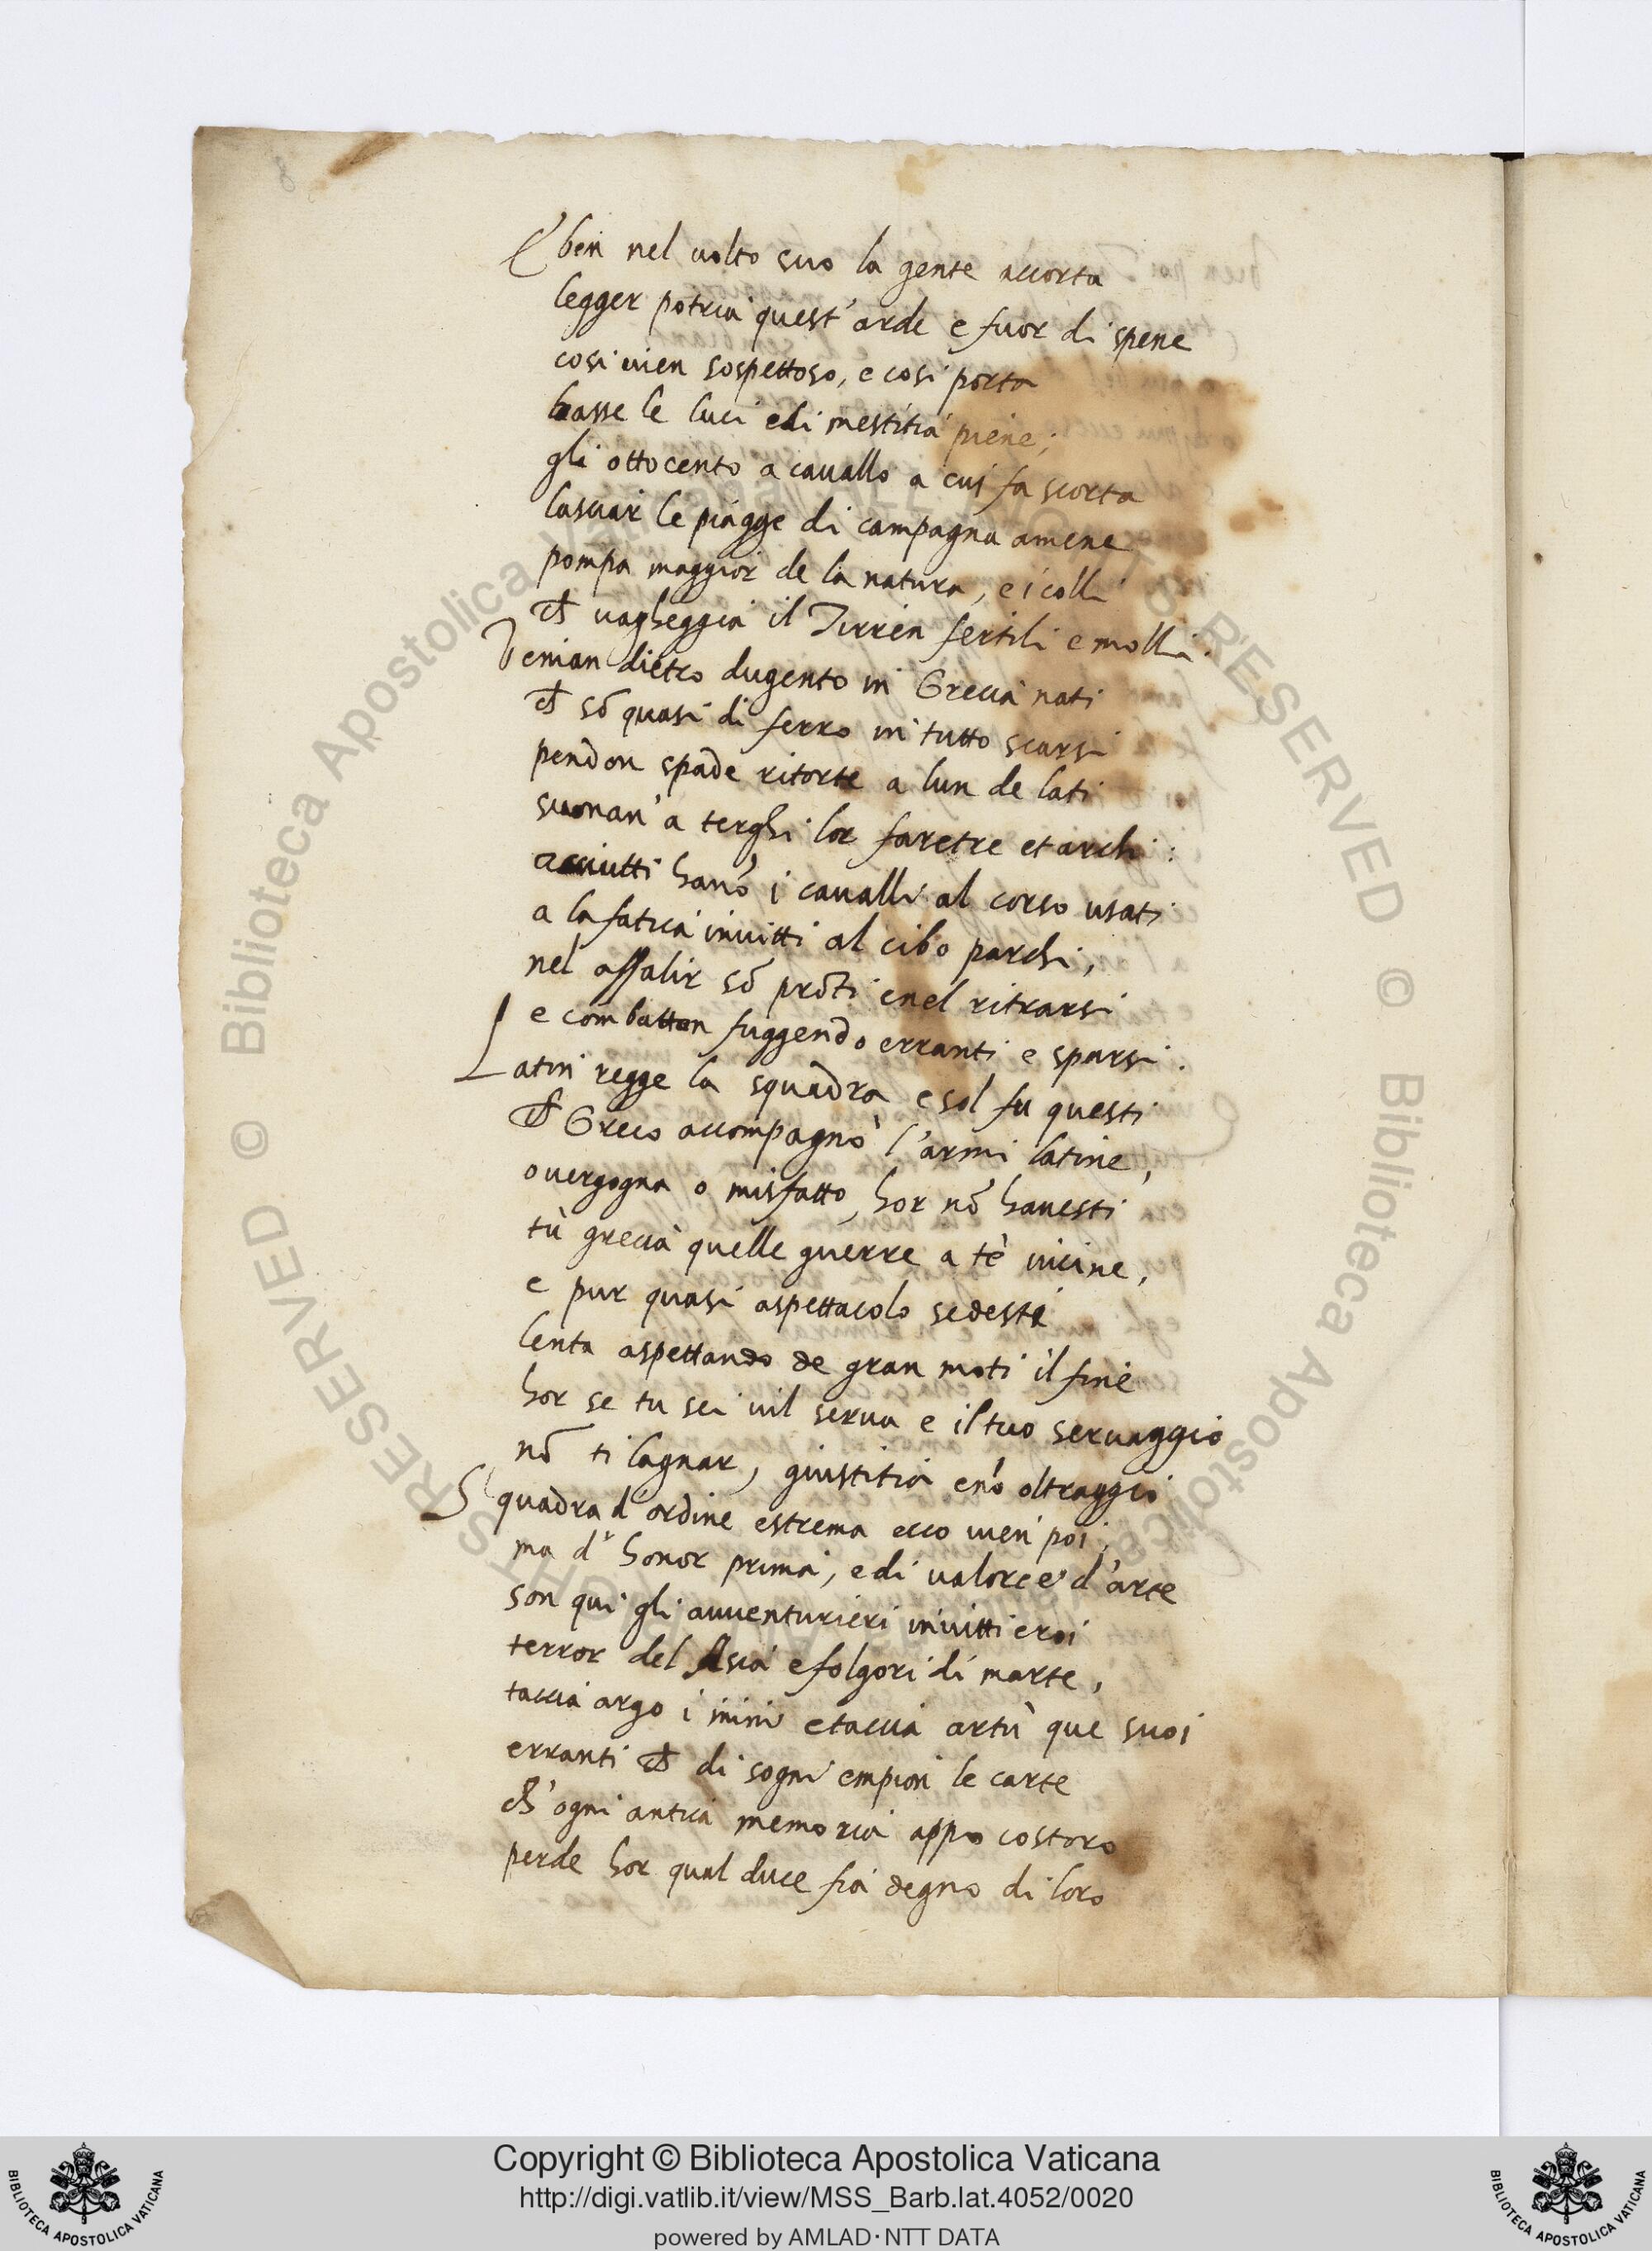 8
E' ben nel uolto suo la gente accorta
legger potria quest' arde e fuor di spene
cosi uien sospettoso, e cosi porta
basse le luci e di mestitia piene;
gli ottocento a cauallo a cui fa scorta
lasciar le piagge di campagna amene
pompa maggior de la natura, e i colli
ch̄ uagheggia il Tirren fertili e molli.
Venian dietro dugento in Grecia nati
ch̄ sõ quasi di ferro in tutto scarsi
pendon spade ritorte a lun de lati
suonan' a terghi lor faretre et archi:
asciutti hano' i caualli al corso usati
a la fatica inuitti al cibo parchi,
nel assalir sõ prõti e nel ritrarsi
e combatton fuggendo erranti e sparsi.
Latin regge la squadra e sol fu questi
ch̄ Greco accompagnò l'armi latine,
o uergogna o misfatto, hor nõ hauesti
tù grecia quelle guerre a tè uicine,
e pur quasi aspettacolo sedesti
lenta aspettando de gran moti il fine
hor se tu sei uil serua e il tuo seruaggio
nõ ti lagnar, giustitia e nò oltraggio
Squadra d'ordine estrema ecco uien poi,
ma d' honor prima, e di ualor e d'arte
son qui gli auuenturieri inuitti eroi
terror del Asia e folgori di marte,
taccia argo i mini e taccia artù que suoi
erranti ch̄ di sogni empion le carte
ch'ogni antica memoria appo costoro
perde hor qual duce fia degno di loro
© Biblioteca Apostolica Vaticana ALL RIGHTS RESERVED
Copyright © Biblioteca Apostolica Vaticana
http://digi.vatlib.it/view/MSS_Barb.lat.4052/0020
powered by AMLAD·NTT DATA
BIBLIOTECA APOSTOLICA VATICANA
BIBLIOTECA APOSTOLICA VATICANA